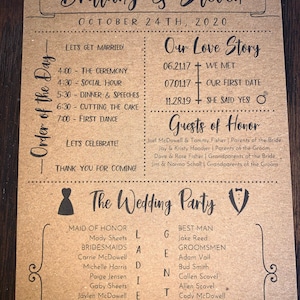 OCTOBER 24TH, 2020
Order of the Day
LET'S GET MARRIED!
4:00 - THE CEREMONY
4:30 - SOCIAL HOUR
5:30 - DINNER & SPEECHES
6:30 - CUTTING THE CAKE
7:00 - FIRST DANCE
LET'S CELEBRATE!
THANK YOU FOR COMING!
Our Love Story
06.21.17 WE MET
07.01.17 OUR FIRST DATE
11.28.19 SHE SAID YES
Guests of Honor
McDowell & Tommy Fisher | Parents of the Bride
Joy & Kristy Hoosier | Parents of the Groom
Dave & Rose Fisher | Grandparents of the Bride
Jim & Norma Schell | Grandparents of the Groom
The Wedding Party
MAID OF HONOR
Mady Sheets
BRIDESMAIDS
Carrie McDowell
Michelle Harris
Paige Jensen
Gaby Sheets
Jaylen McDowell
L
A
D
I
E
G
E
N
T
BEST MAN
Jake Reed
GROOMSMEN
Adam Vail
Bud Smith
Callen Scovel
Allen Scovel
Cody McDowell